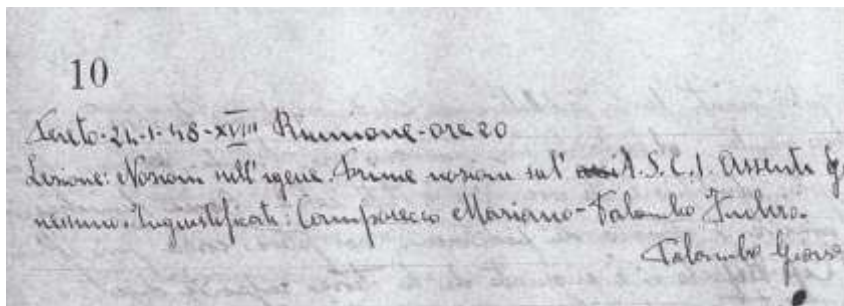 10
24-1-48-XVIII Riunione-ore 20
Lezione: Nozioni sull'igene. Prime nozioni sul' A.S.C.I. Assenti
nessuno. Ingiustificati: Mariano-Palombo
Palombo